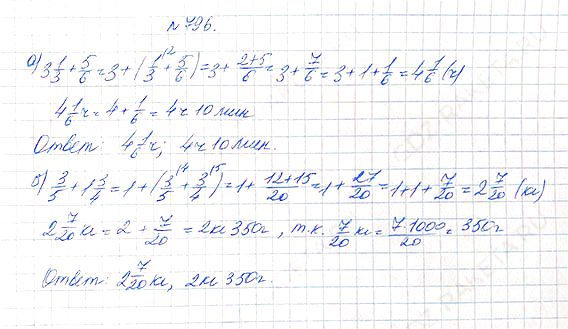 №796.
а) 3 1/3 + 5/6 = 3 + (1/3^2 + 5/6) = 3 + (2+5)/6 = 3 + 7/6 = 3 + 1 + 1/6 = 4 1/6 (ч)
4 1/6 ч = 4 + 1/6 = 4ч 10 мин
Ответ: 4 1/6 ч; 4ч 10 мин.
б) 3/5 + 1 3/4 = 1 + (3/5^4 + 3/4^5) = 1 + (12+15)/20 = 1 + 27/20 = 1+1+ 7/20 = 2 7/20 (кг)
2 7/20 кг = 2 + 7/20 = 2кг 350г, т.к. 7/20 кг = (7·1000)/20 = 350г
Ответ: 2 7/20 кг, 2кг 350г.
GDZ-RAKETA.RU